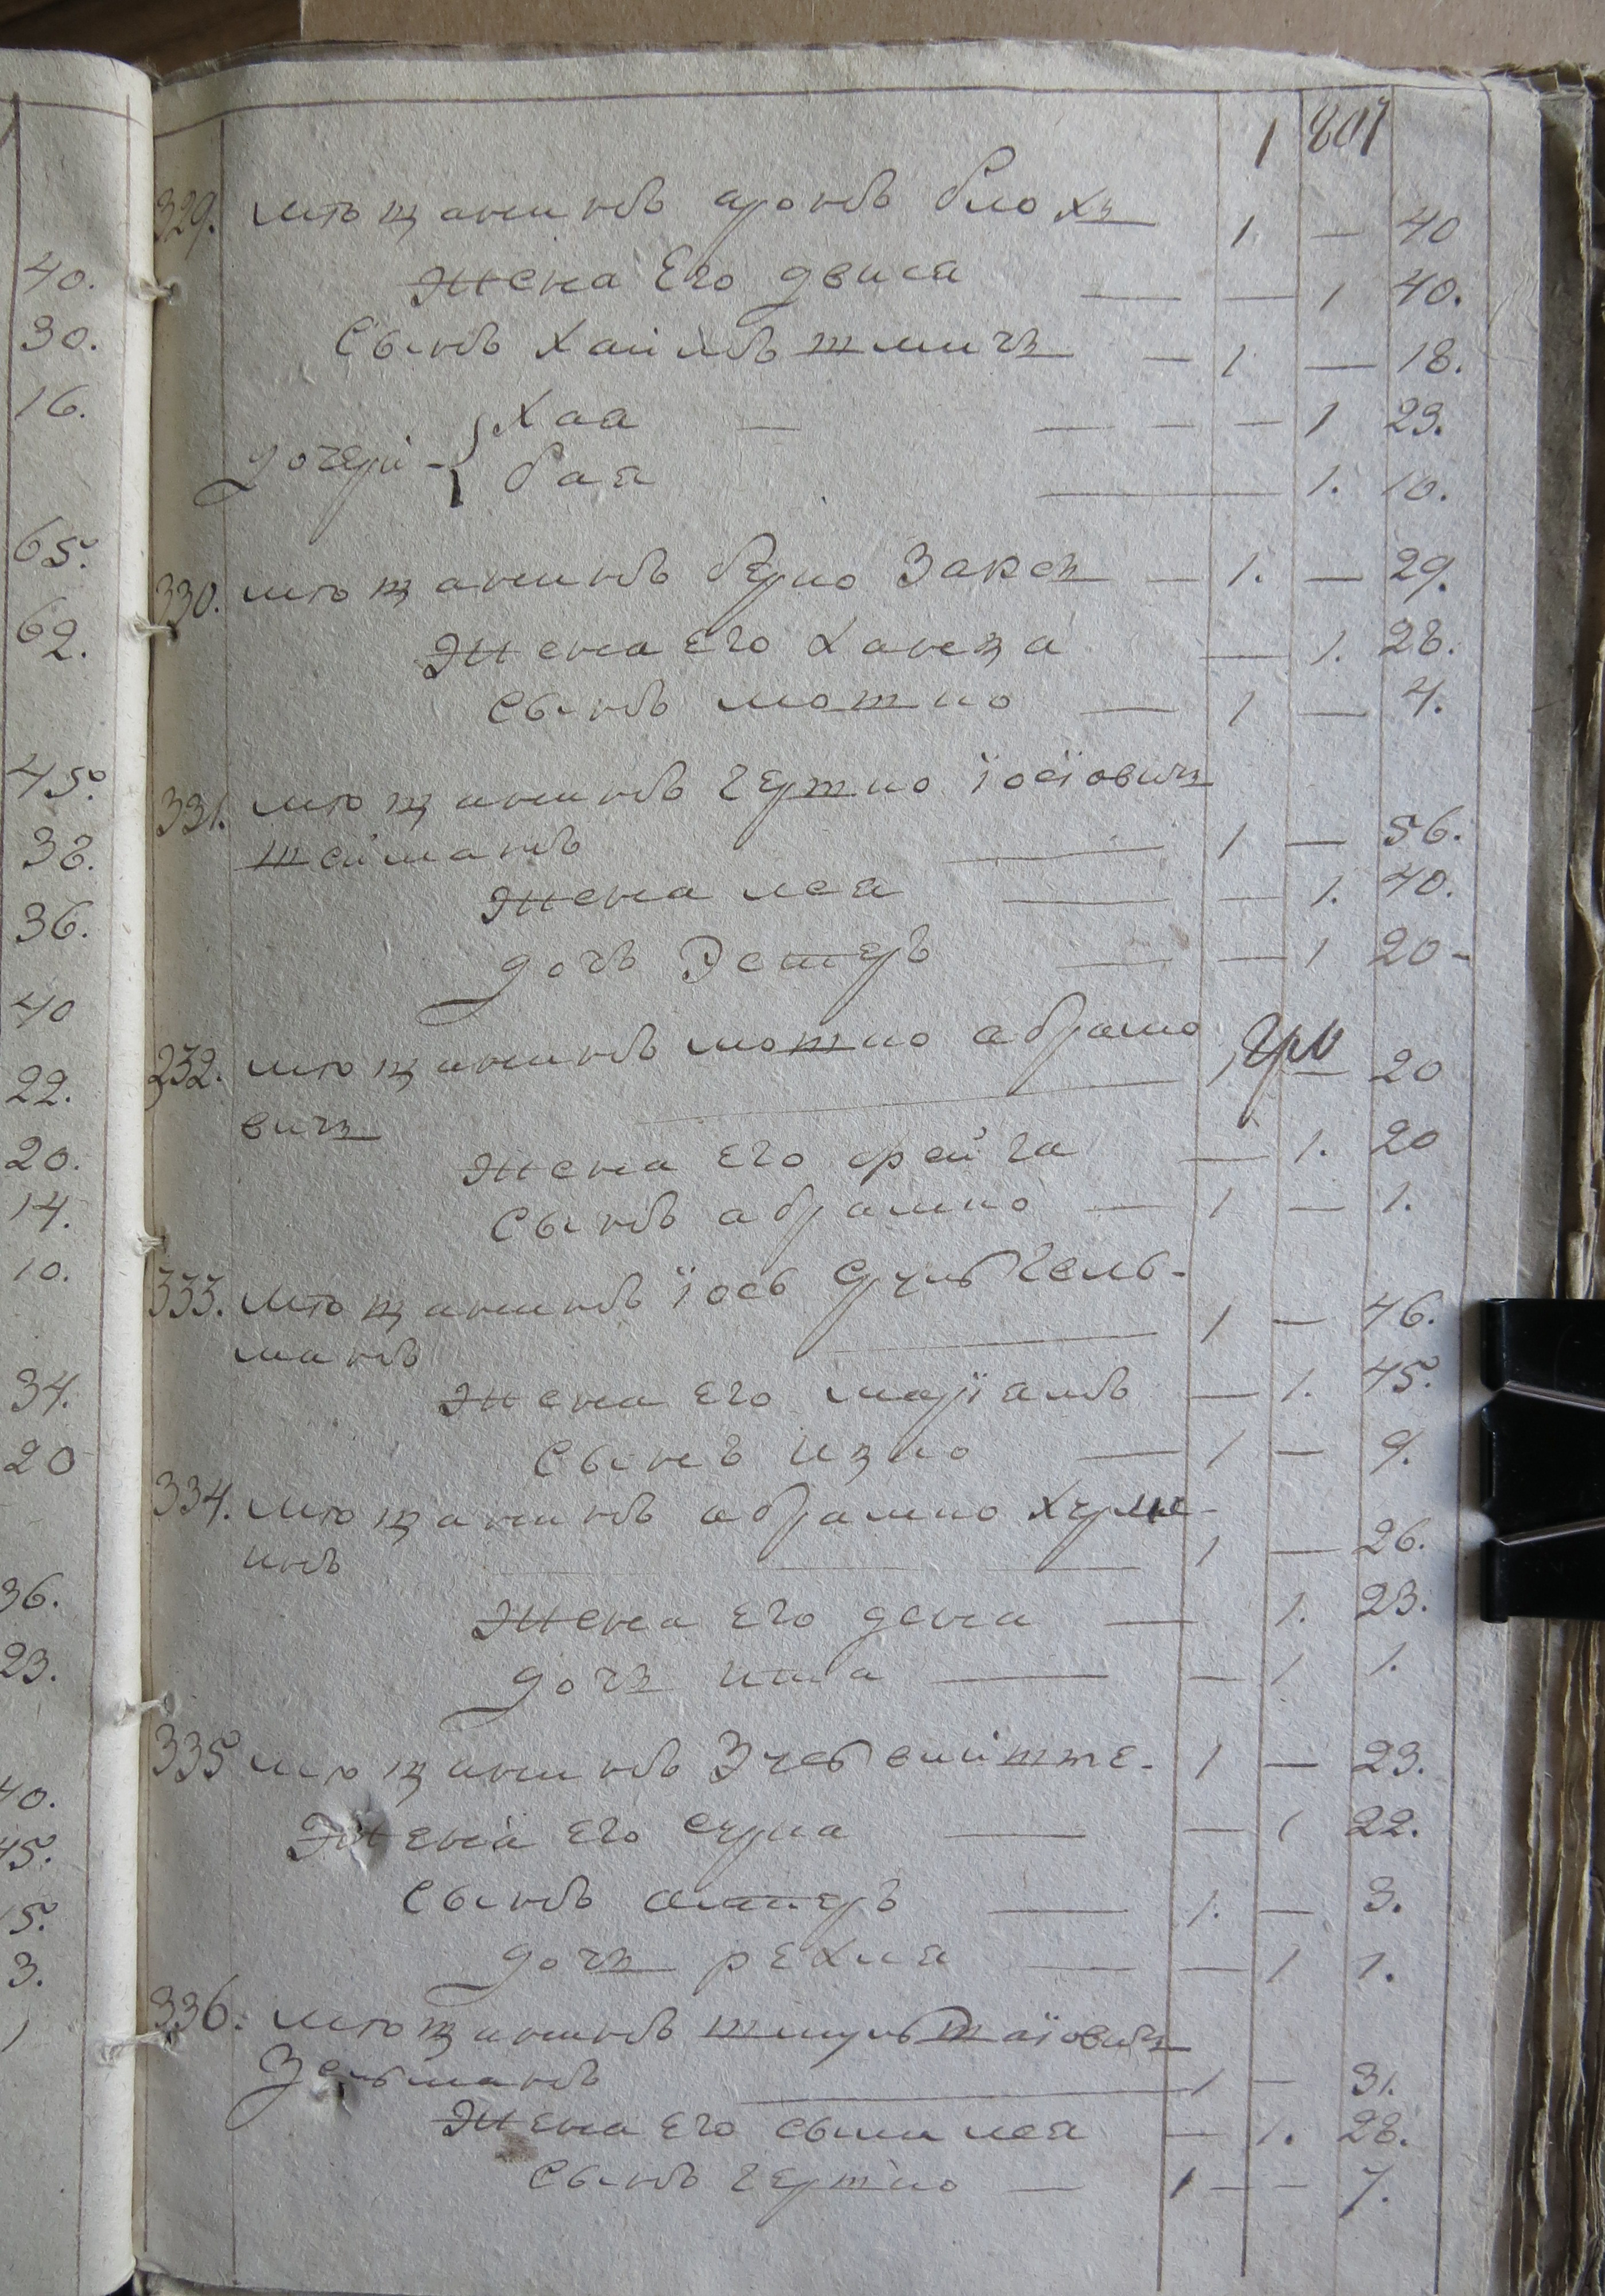 1 801
329. мѣщанинъ аронъ блохъ 1. — 40
Жена Его двися — — 1 40.
Сынъ Хаимъ шлиозъ — 1 — 18.
Хая — — — — — 1 23.
дочери
бая — 1. 10.
330. мѣщанинъ берко Заксъ — 1. — 29.
Жена Его Ханна — 1. 28.
Сынъ мотно — 1 — 4.
331. мѣщанинъ гершко іосіовичъ
шейманъ — 1 — 56.
Жена лея — — 1. 40.
дочъ Эстеръ — — 1 20 -
232. мѣщанинъ мотко абрамо
1 — 20
вичъ
Жена Его фейга — 1. 20
Сынъ абрамко — 1 — 1.
333. мѣщанинъ іось Гель-
манъ — 1 — 46.
Жена Его маріамъ — 1. 45.
Сынъ ицко — 1 — 9.
334. мѣщанинъ абрамко
инъ — 1 — 26.
Жена Его дена — 1. 23.
дочъ ита — — 1 1.
335 мѣщанинъ 1 — 23.
Жена Его сурка — — 1 22.
Сынъ аншеръ — 1. — 3.
дочъ рехля — — 1 1.
336. мѣщанинъ шмуль шаіовичъ
Зельманъ — 1 — 31.
Жена Его лея — 1. 28.
Сынъ гершко — 1 — — 7.
40.
30.
16.
65.
62.
45.
38.
36.
40
22.
20.
14.
10.
34.
20
36.
23.
40.
45.
15.
3.
1